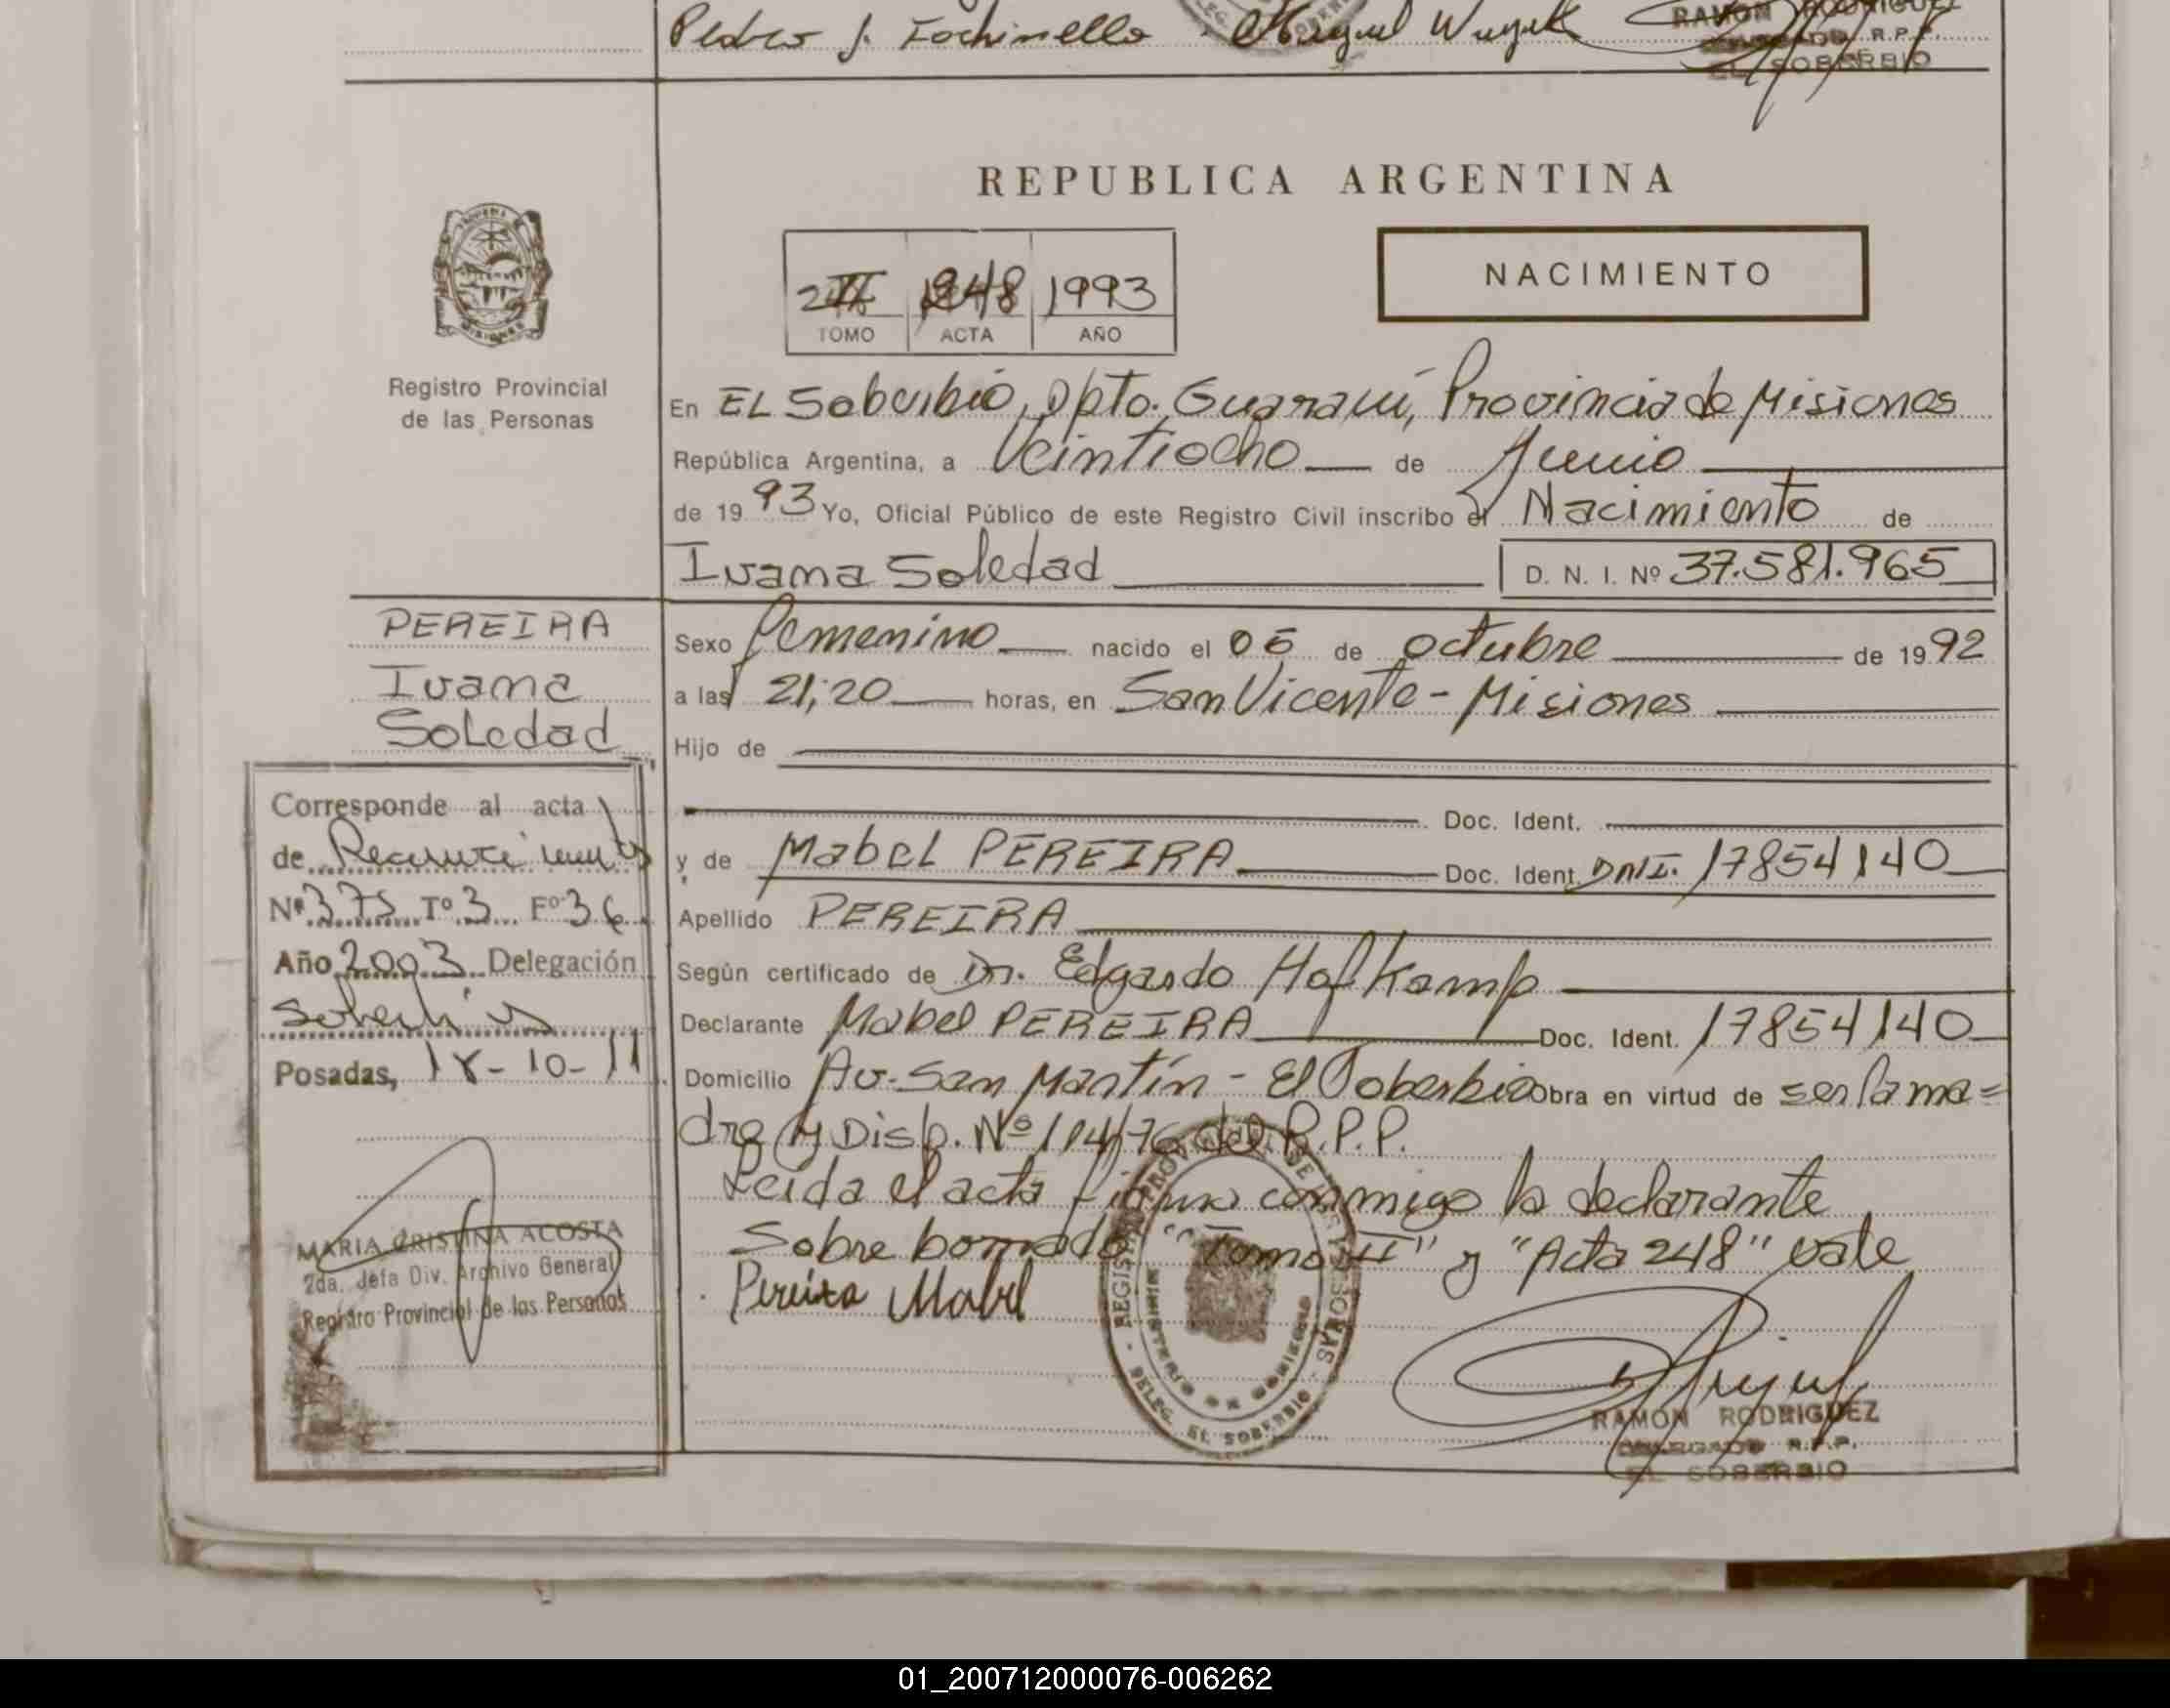 Pedro J. Miguel
RAMON RODRIGUEZ
R.P.P.
EL SOBERBIO
REPUBLICA ARGENTINA
MISIONES
II 248 1993
TOMO ACTA AÑO
NACIMIENTO
Registro Provincial
de las Personas
En EL Soberbio, Dpto. Guaraní, Provincia de Misiones
República Argentina, a Veintiocho de Junio
de 1993 Yo, Oficial Público de este Registro Civil inscribo el Nacimiento de
Ivana Soledad D. N. I. Nº 37.581.965
PEREIRA
Ivana
Soledad
Sexo femenino nacido el 05 de octubre de 1992
a las 21;20 horas, en San Vicente - Misiones
Hijo de
Doc. Ident.
y de Mabel PEREIRA Doc. Ident. DNI. 17854140
Apellido PEREIRA
Según certificado de Dr. Edgardo Hofkamp
Declarante Mabel PEREIRA Doc. Ident. 17854140
Domicilio Av. San Martín - El Soberbio Obra en virtud de ser la ma=
dre y Disp. Nº 114/76 del R.P.P.
Leida el acta firma conmigo la declarante
Sobre borrado "Tomo II" y "Acta 248" vale
Pereira Mabel
Corresponde al acta
de Reconocimiento
Nº 375 Tº 3 Fº 36
Año 2003 Delegación
Soberbio
Posadas, 18-10-11
MARIA CRISTINA ACOSTA
2da. Jefa Div. Archivo General
Registro Provincial de las Personas
REGISTRO PROVINCIAL DE LAS PERSONAS
MINISTERIO DE GOBIERNO
DELEG. EL SOBERBIO
RAMON RODRIGUEZ
DELEGADO R.P.P.
EL SOBERBIO
01_200712000076-006262